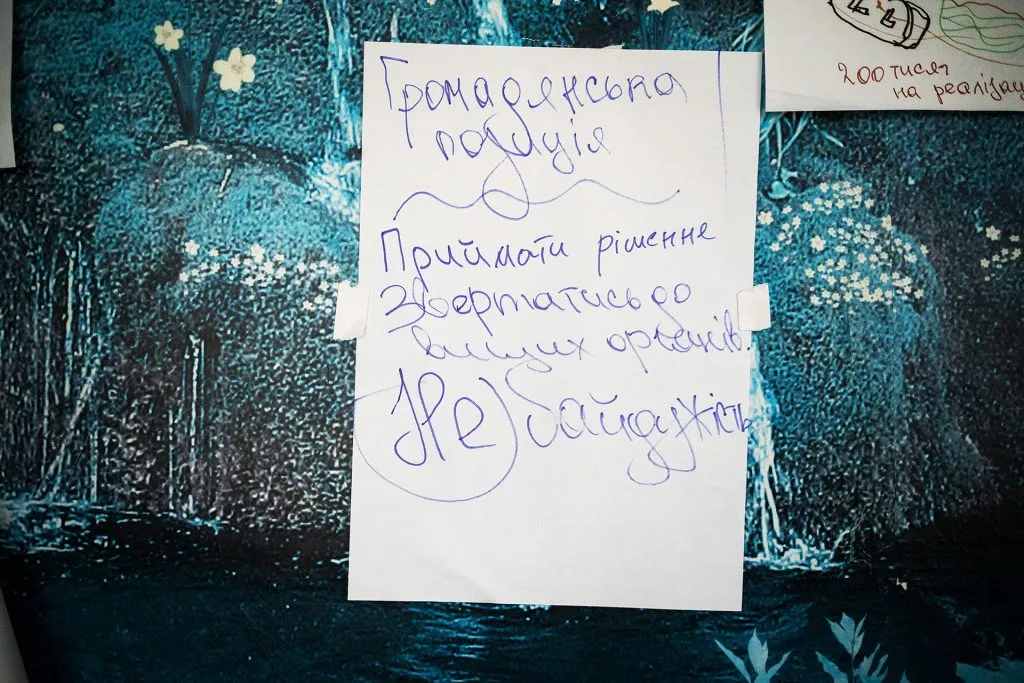 Громадянська
позиція
Приймати рішенне
Звертатись до
вищих органів.
(Не) байдужість
200 тисяч
на реалізац